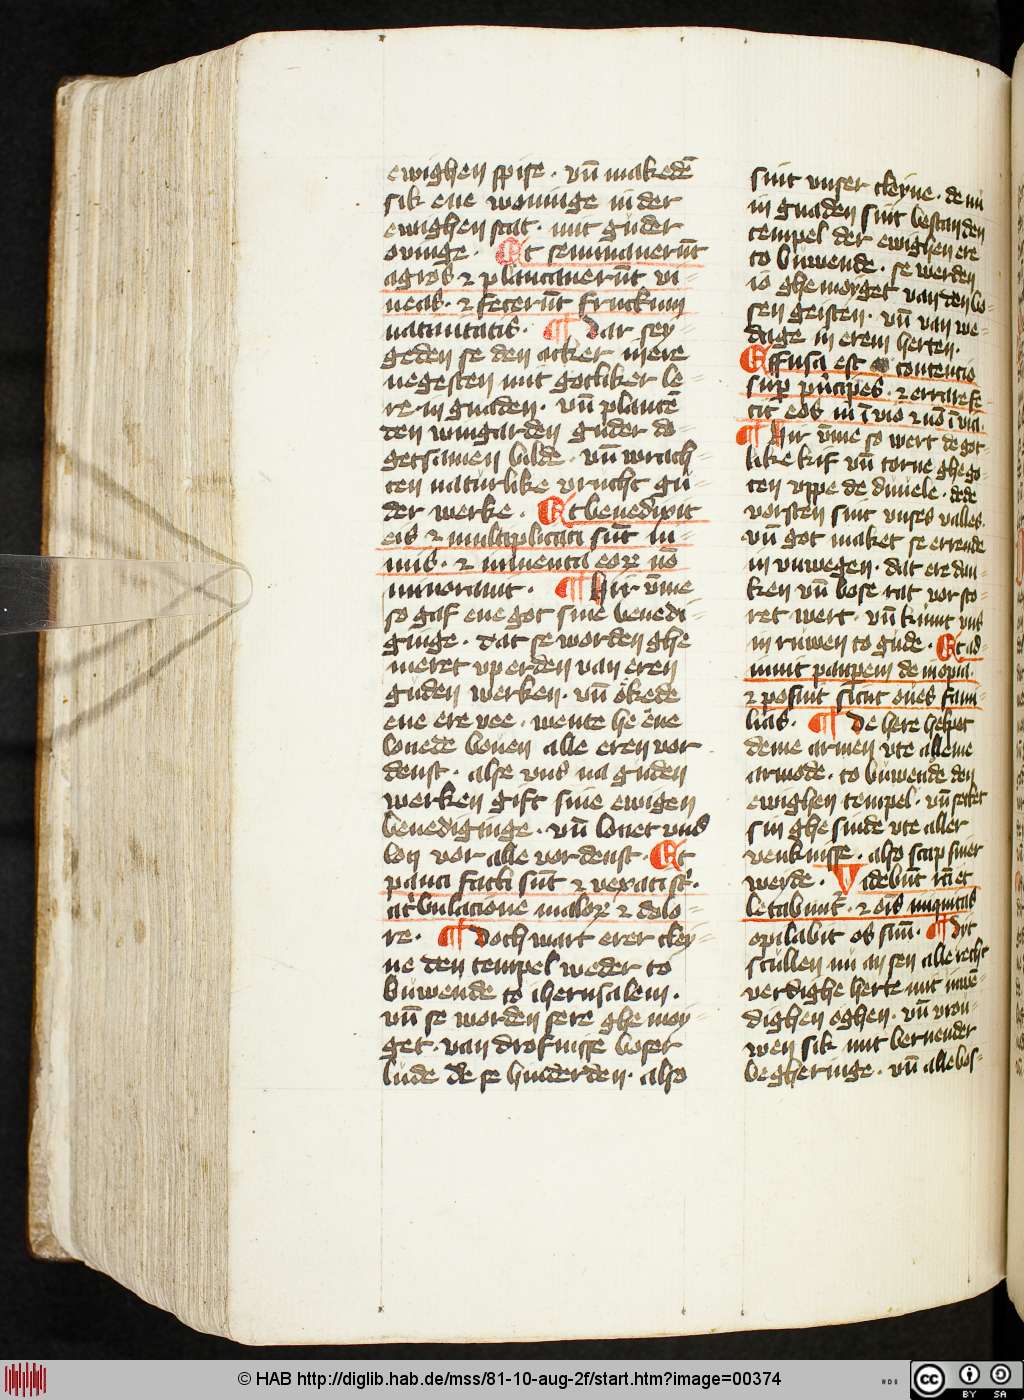 ewighen spise · vn̄ makedē
sik ene woninge in der
ewighen stat · mit guder
ouinge · Et seminauerūt
agros · ⁊ plantauerūt vi-
neas · ⁊ fecerūt fructum
natiuitatis · ¶ Dar sey=
geden se den acker erer
negesten mit gotliker le=
re in gnaden · vn̄ plantē
den wingarden guder do=
getsamen bilde · vn̄ wrach=
ten naturlike vrucht gu=
der werke · Et benedixit
eis ⁊ multiplicati sūt ni-
mis · ⁊ iumenta eoꝝ nō
minorauit · ¶ Hir v̄me
so gaf ene got sine benedi=
ginge · dat se worden ghe
meret vp erden van eren
guden werken · vn̄ okede
ene ere vee · wente he ene
louede bouen alle eren vor
denst · alse vns na guden
werken gift sine ewigen
benediginge · vn̄ louet vns
lon vor alle vordenst · Et
pauci facti sūt ⁊ vexati st̄ ·
a t'bulacione maloꝝ ⁊ dolo=
re · ¶ Doch wart erer cley=
ne den tempel weder to
buwende to iherusalem ·
vn̄ se worden sere ghe moy=
get · van drofnisse boser
lude de se hinderden · also
sint vnser cleyne · de nu
in gnaden sint bestanden
tempel der ewighen ere
to buwende · se werden
io ghe moyget van den bo=
sen geisten · vn̄ van we=
dage in erem herten ·
Effusa est contencio
suꝑ p'ncipes · ⁊ errare fe
cit eos in īuio ⁊ nō ī via ·
¶ Hir v̄me so wert de got=
like kif vn̄ torne ghe go=
ten vppe de duuele · dede
vorsten sint vnses valles ·
vn̄ got maket se errende
in vnwegen · dat ere dan=
ken vn̄ bose rat vorsto=
ret wert · vn̄ kumt vns
in ruwen to gude · Et ad-
iuuit pauꝑem de inopia ·
⁊ posuit sicut oues fami-
lias · ¶ De here helpet
deme armen vte alleme
armode · to buwende den
ewighen tempel · vn̄ settet
sin ghe sinde vte aller
venknisse · also scap siner
weyde · Videbūt iusti et
letabunt̄ · ⁊ oīs iniquitas
opilabit os suū · ¶ Dit
scullen nu an sen alle recht
verdighe herte mit inwē=
dighen oghen · vn̄ vrou=
wen sik mit bernender
begheringe · vn̄ alle bos=
© HAB http://diglib.hab.de/mss/81-10-aug-2f/start.htm?image=00374
WDB
cc
BY SA